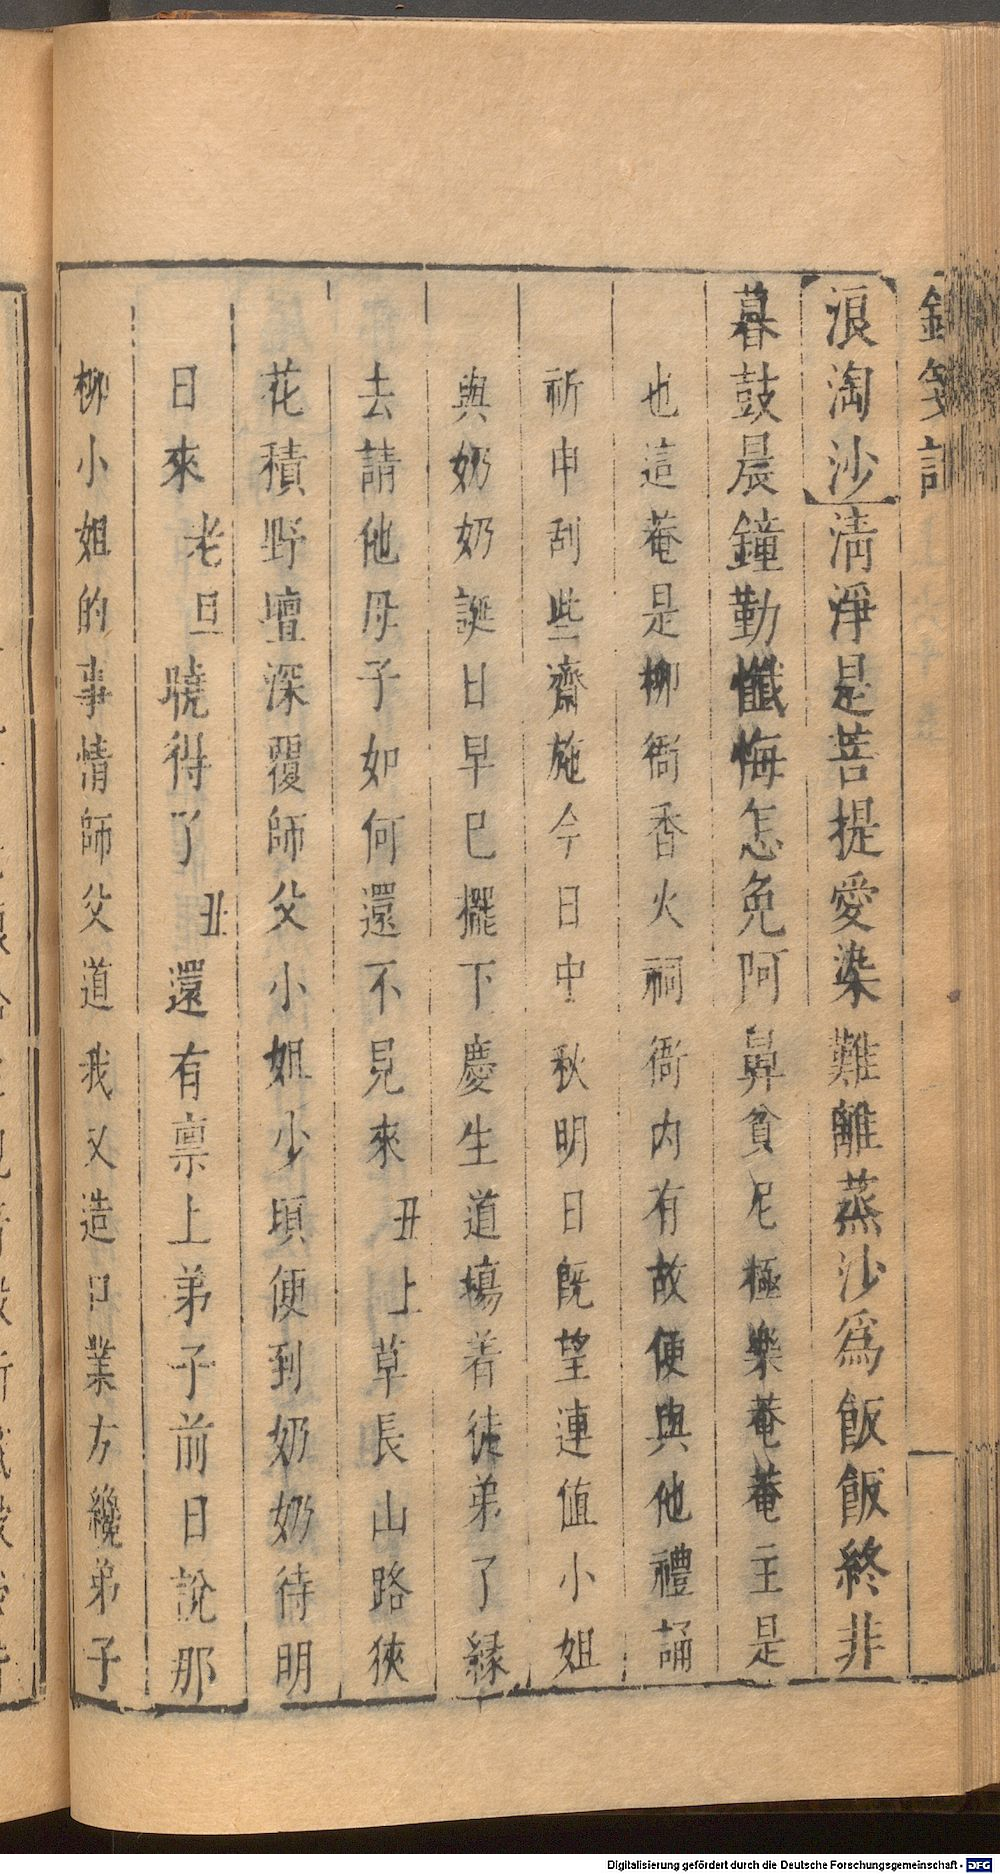 浪淘沙清淨是菩提愛染難離蒸沙爲飯飯終非
暮鼓晨鐘勤懺悔怎免阿鼻貧尼極樂菴菴主是
也這菴是柳衙香火祠衙内有故便與他禮誦
祈申刮些齋施今日中秋明日旣望連值小姐
與奶奶誕日早巳擺下慶生道塲着徒弟了緣
去請他母子如何還不見來丑上草長山路狹
花積野壇深覆師父小姐少頃便到奶奶待明
日來老旦曉得了丑還有禀上弟子前日說那
柳小姐的事情師父道我又造口業方纔弟子
Digitalisierung gefördert durch die Deutsche Forschungsgemeinschaft - DFG